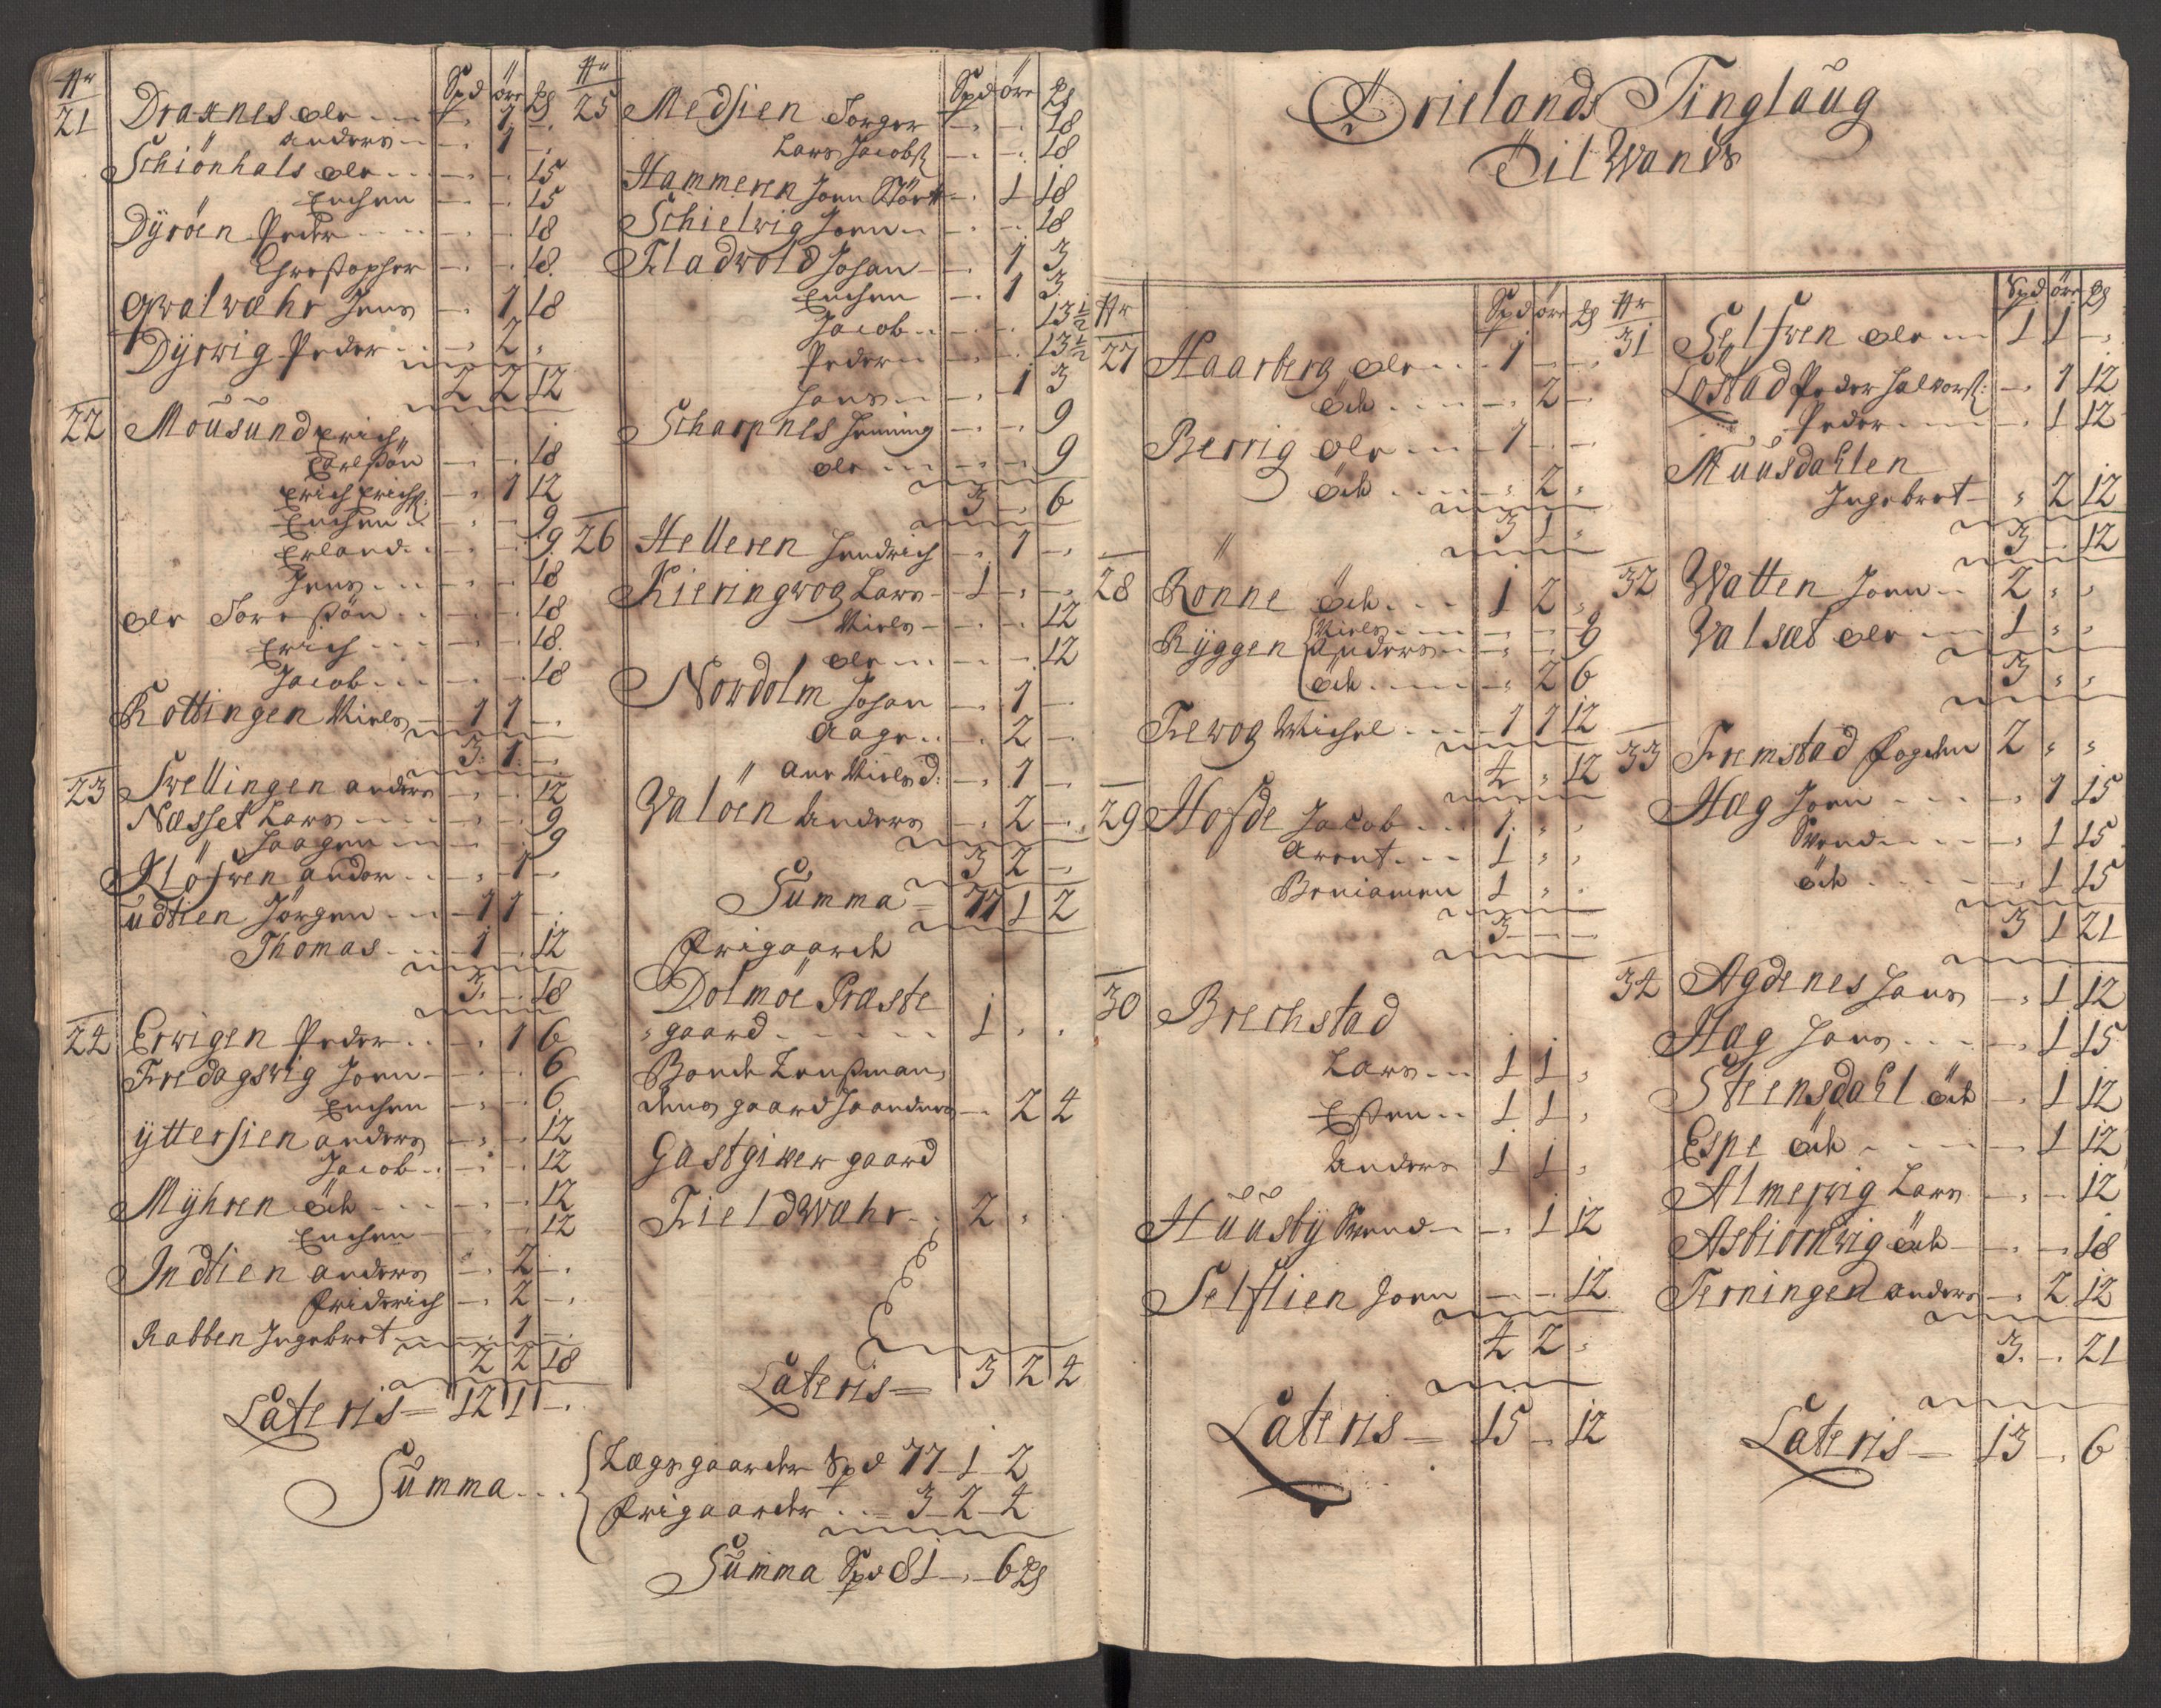 Nr Spd öre ₰
21 Draxnes ole - 1 -
anders - 1 -
Schiönhals ole - - 15
Enchen - - 15
Dÿröen Peder - - 18
Christopher - - 18
Qwalwahr Jens - 1 18
Dÿrwig Peder - 2 -
2 2 12
22 Moüsund Erich
Carlssön - - 18
Erich Erichs: - 1 12
Enchen - - 9
Erland - - 9
Jens - - 18
ole Toressön - - 18
Erich - - 18
Jacob - - 18
Kottingen Niels 1 1 -
3 1 -
23 Swellingen anders - - 12
Næsset Lars - - 9
Haagen - - 9
Klöfwen ander - 1 -
üdtien Jörgen 1 1 -
Thomas 1 - 12
3 - 18
24 Erwigen Peder - 1 6
Fredagswig Joen - - 6
Enchen - - 6
ÿttersien anders - - 12
Jacob - - 12
Mÿhren öde - - 12
Enchen - - 12
Indtien anders - 2 -
Friderich - 2 -
Rabben Ingebret - 1 -
2 2 18
Lateris = 12 1 -
Nr Spd öre ₰
25 Medsien Torger - - 18
Lars Jacobs: - - 18
Hammeren Joen Stört - 1 18
Schielwig Joen - - 18
Fladwold Johan - 1 3
Enchen - 1 3
Jacob - - 13½
Peder - - 13½
Hans - 1 3
Scharpnes Henning - - 9
ole - - 9
3 - 6
26 Helleren Hendrich - 1 -
Kieringwog Lars 1 - -
Niels - - 12
ole - - 12
Nordolm Johan - 1 -
Aage - 2 -
Ane Nielsd: - 1 -
Waloen Anders - 2 -
3 2 -
Summa = 77 1 2
Frigaarde
Dolmöe Præste
gaard 1 - -
Bonde Lenßmans
gaard - 2 4
Gastgiver gaard
Fieldwahr 2 - -
Lateris = 3 2 4
Summa Lægsgaarder Spd 77 - 1 - 2
Frigaarder = 3 - 2 - 4
Summa Spd 81 - 6 ₰
Ørielands Tinglaüg
Til Wands
Nr Spd öre ₰
27 Haarberg ole 1 - -
öde - 2 -
Berrig ole 1 - -
öde - 2 -
3 1 -
28 Rönne öde 1 2 -
Rÿggen Niels
Anders - - 9
öde - 2 6
Frewog Michel 1 1 12
4 - 12
29 Hofde Jacob 1 - -
Arent 1 - -
Beniamen 1 - -
3 - -
30 Brechstad
Lars 1 1 -
Esten 1 1 -
Anders 1 1 -
Hüüsbÿ Svend - 1 12
Selflien Joen - - 12
4 2 -
Lateris = 15 - 12
Nr Spd öre ₰
31 Selfwen ole 1 1 -
Löstad Peder Halvors: - 1 12
Peder - 1 12
Müüsdahlen
Ingebret - 2 12
3 - 12
32 Watten Joen 2 - -
Walsæt ole 1 - -
3 - -
33 Fremstad 2 - -
Hag Joen - 1 15
Svend - 1 15
öde - 1 15
3 1 21
34 Agdenes Hans - 1 12
Hag Hans - 1 15
Steensdahl öde - 1 12
Espe öde - 1 12
Almerwig Lars - - 12
Asbiörnwig öde - - 18
Terningen anders - 2 12
3 - 21
Lateris = 13 - 6